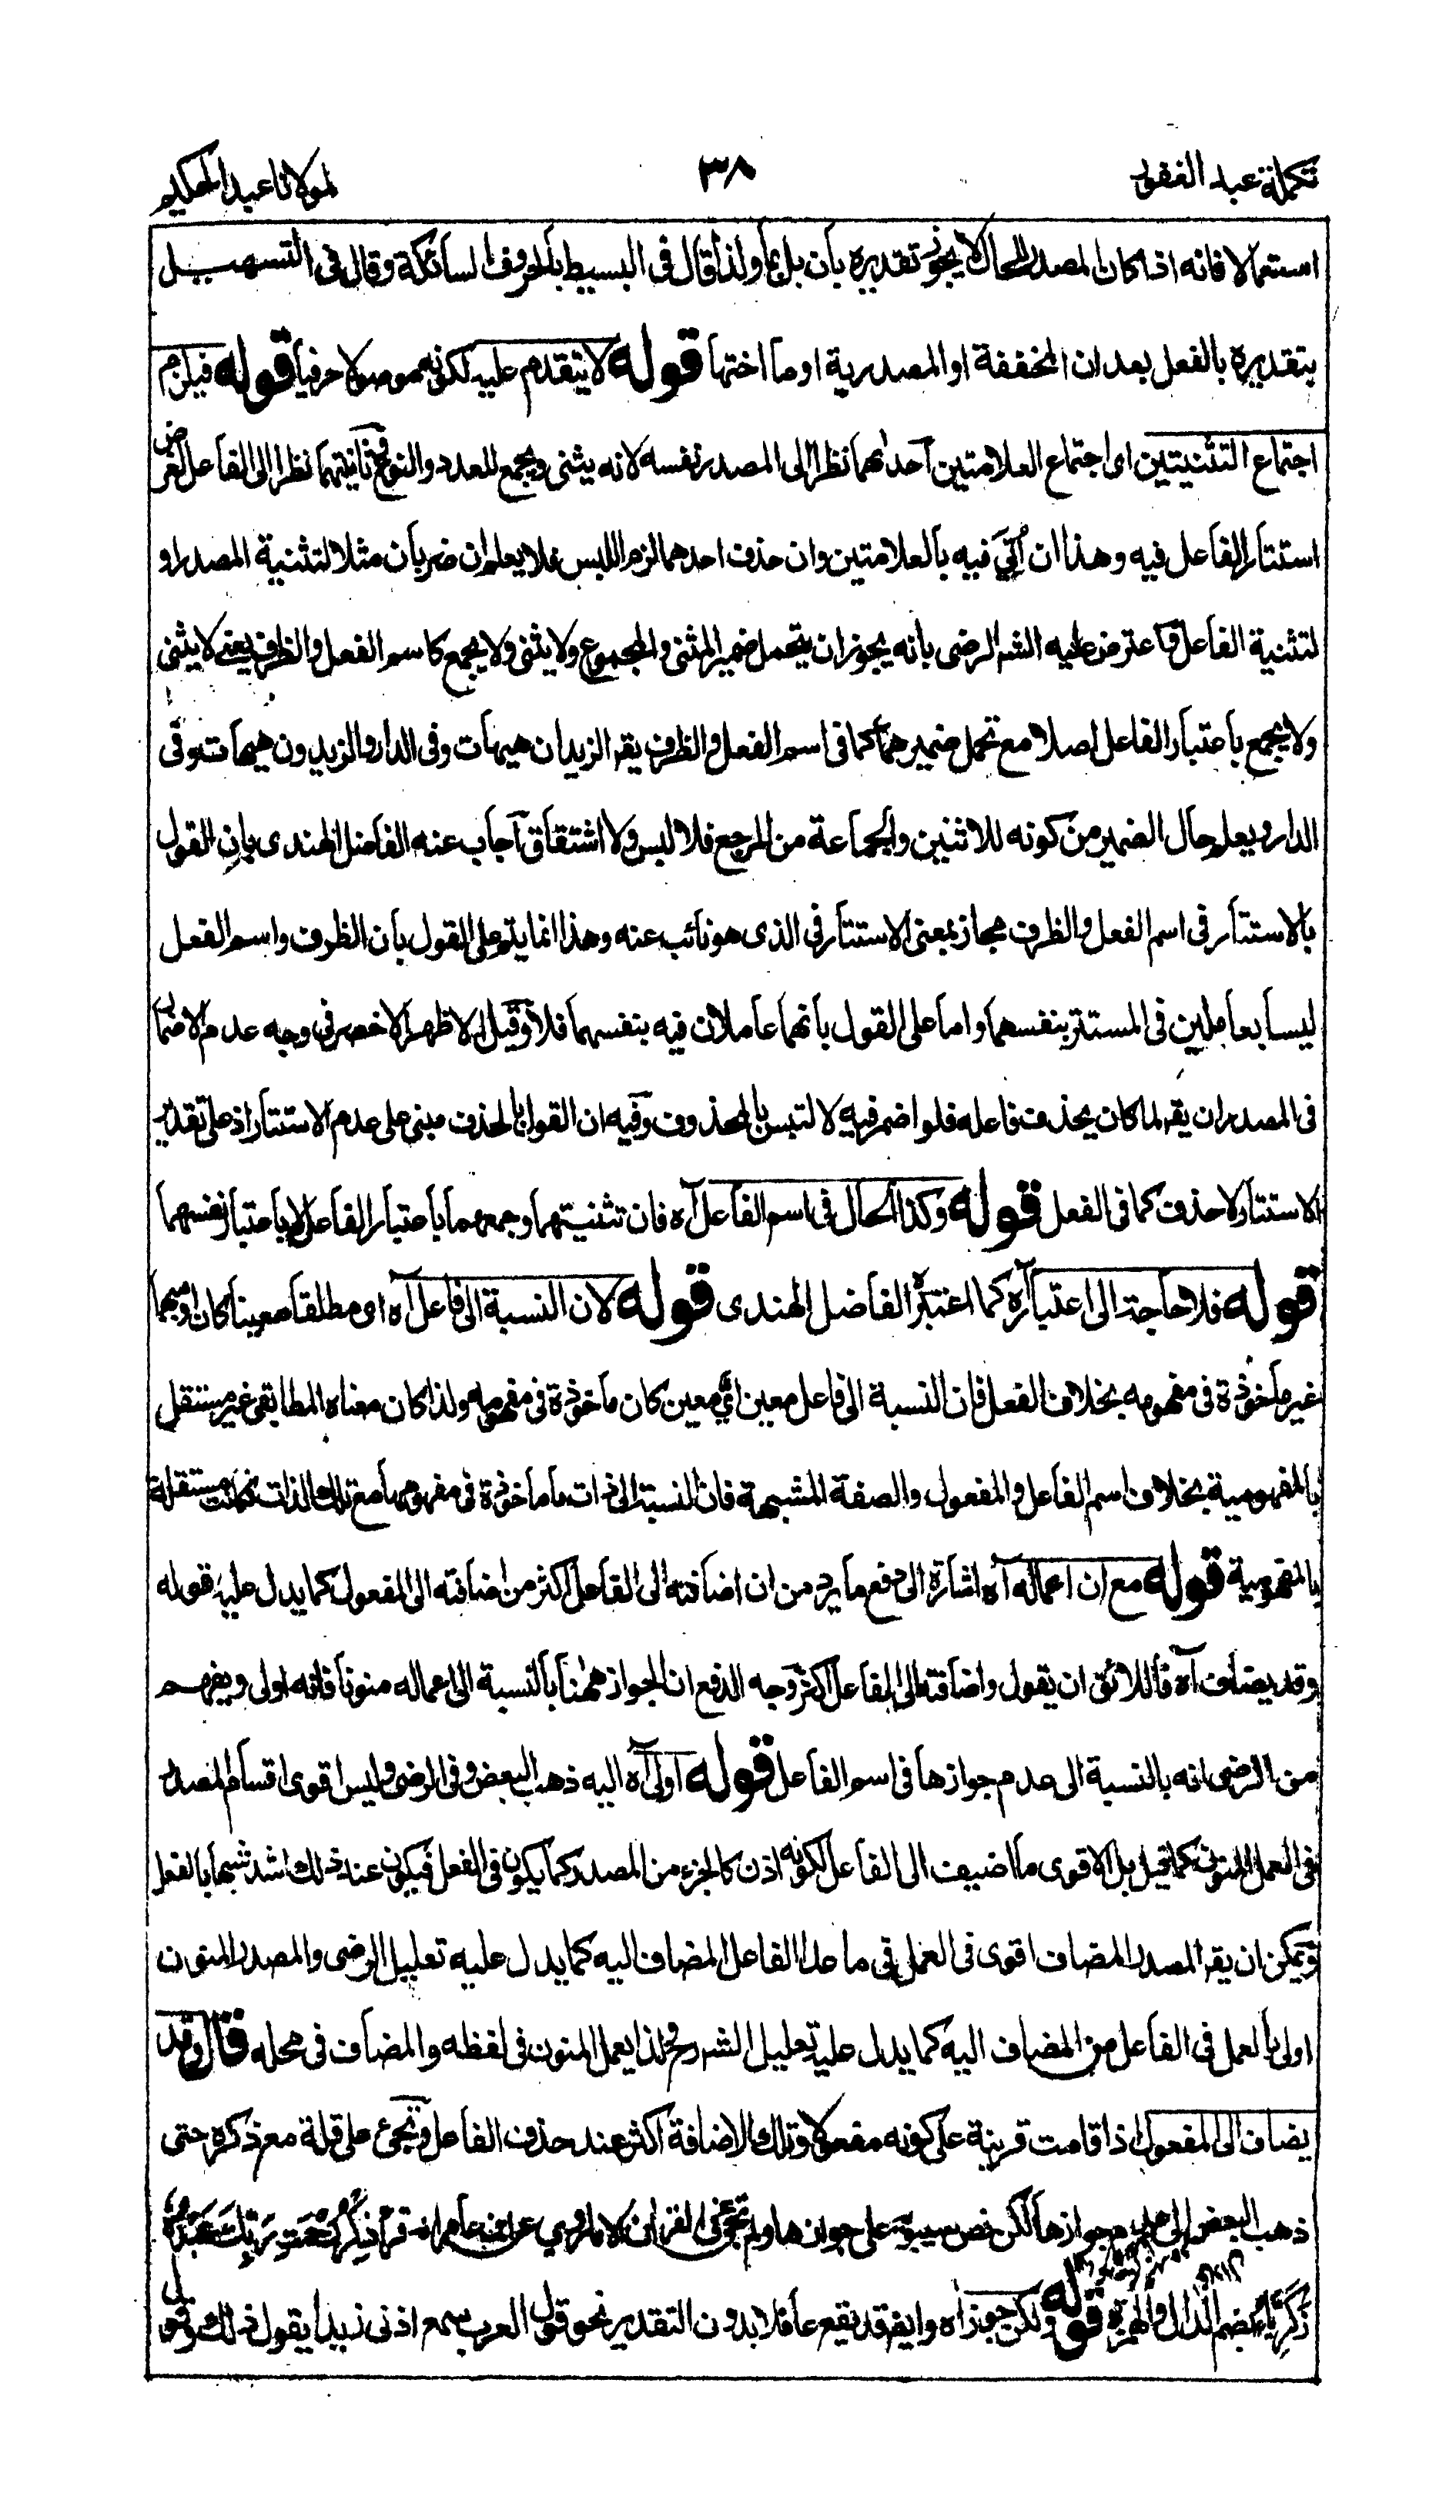 تكملة عبد الغفور
٣٨
لمولانا عبد الحكيم
استعمالا فانه اذا كان المصدر للحال لا يجوز تقديره بان بل بما ولذا قال في البسيط بالحروف السابكة وقال في التسهيل
بتقديره بالفعل بعد ان المخففة او المصدرية او ما اختها قوله لا يتقدم عليه لكونه موصولا حرفيا قوله فيلزم
اجتماع التثنيتين اى اجتماع العلامتين احدٰهما نظرا الى المصدر نفسه لانه يثنى ويجمع للعدد والنوع وثانيتهما نظرا الى الفاعل لفرض
استتار الفاعل فيه وهذا ان اُتِيَ فيه بالعلامتين وان حذف احدهما لزم اللبس فلا يعلم ان ضربان مثلا لتثنية المصدر او
لتثنية الفاعل فاعترض عليه الشه الرضى بانه يجوز ان يتحمل ضمير المثنى والمجموع ولا يثنى ولا يجمع كاسم الفعل والظرف يعنى لا يثنى
ولا يجمع باعتبار الفاعل اصلا مع تحمل ضميرهما كما في اسم الفعل والظرف يقه الزيدان هيهات وفى الدار والزيدون هيهات وفى
الدار ويعلم حال الضمير من كونه للاثنين والجماعة من المرجع فلا لبس ولا اشتقاق اجاب عنه الفاضل الهندى بان القول
بالاستتار فى اسم الفعل والظرف مجاز بمعنى الاستتار فى الذى هو نائب عنه وهذا انما يتم على القول بان الظرف واسم الفعل
ليسا بعاملين فى المستتر بنفسهما واما على القول بانهما عاملان فيه بنفسهما فلا وقيل الاظهر الاخصر فى وجه عدم الاضمار
فى المصدر ان يقه لما كان يحذف فاعله فلو اضمر فيه لالتبس بالمحذوف وفيه ان القول بالحذف مبنى على عدم الاستتار اذ على تقدير
الاستتار لا حذف كما فى الفعل قوله وكذا الحال فى اسم الفاعل آه فان تثنيتهما وجمعهما باعتبار الفاعل لا باعتبار نفسهما
قوله فلا حاجة الى اعتباره آه كما اعتبره الفاضل الهندى قوله لان النسبة الى فاعل آه اى مطلقا معينا كان او مبهما
غير ماخوذة فى مفهومه بخلاف الفعل فان النسبة الى فاعل معين اىّ معين كان ماخوذة فى مفهومه ولذا كان معناه المطابقى غير مستقل
بالمفهومية بخلاف اسم الفاعل والمفعول والصفة المشبهة فان النسبة الى ذات ما ماخوذة فى مفهومها مع تلك الذات فكانت مستقلة
بالمفهومية قوله مع ان اعماله آه اشارة الى دفع ما يرد من ان اضافته الى الفاعل اكثر من اضافته الى المفعول كما يدل عليه قوله
وقد يضاف آه فاللائق ان يقول واضافته الى الفاعل اكثر وجه الدفع ان الجواز ههنا بالنسبة الى اعماله منونا فانه اولى ويفهم
من الرضى انه بالنسبة الى عدم جوازها فى اسم الفاعل قوله اولى آه اليه ذهب البعض وفى الرضى وليس اقوى اقسام المصدر
فى العمل المنون كما قيل بل الاقوى ما اضيف الى الفاعل لكونه اذن كالجزء من المصدر كما يكون فى الفعل فيكون عند ذلك اشد شبها بالفعل
ويمكن ان يقه المصدر المضاف اقوى فى العمل فى ما عدا الفاعل المضاف اليه كما يدل عليه تعليل الرضى والمصدر المنون
اولى بالعمل فى الفاعل من المضاف اليه كما يدل عليه تعليل الشرح ولذا يعمل المنون فى لفظه والمضاف فى محله قال وقد
يضاف الى المفعول اذا قامت قرينة على كونه مفعولا وتلك الاضافة اكثر عند حذف الفاعل وتجئ على قلة مع ذكره حتى
ذهب البعض الى عدم جوازها لكن نص سيبويه على جوازها ولم تجئ فى القران الا ما روى عن ابن عامر انه قرأ ذِكْرُ رَحْمَتِ رَبِّكَ عَبْدَهُ
زَكَرِيَّاءُ بضم الدال والهمزة قوله ولكن جوز آه وايضه قد يقع عاملا بدون التقدير نحو قول العرب سمع اذنى زيدا يقول ذلك وقولى